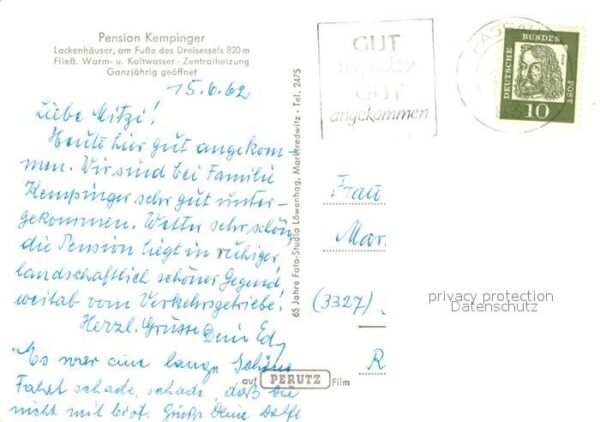 Pension Kempinger
Lackenhäuser, am Fuße des Dreisessels 820 m
Fließ. Warm- u. Kaltwasser · Zentralheizung
Ganzjährig geöffnet
15.6.62
Liebe Mitzi!
Heute hier gut angekom-
men. Wir sind bei Familie
Kempinger sehr gut unter-
gekommen. Wetter sehr schön,
die Pension liegt in ruhiger,
landschaftlich schöner Gegend,
weitab vom Verkehrsgetriebe!
Herzl. Grüsse Dein Ed
Es war eine lange schöne
Fahrt schade, schade, daß Du
nicht mit bist. Grüße Deine
65 Jahre Foto-Studio Löwenhag, Marktredwitz · Tel. 2475
auf PERUTZ Film
GUT
verpackt
GUT
angekommen
PASSAU
DEUTSCHE BUNDES POST
10
Frau
Mar.
(3327).
R
privacy protection
Datenschutz